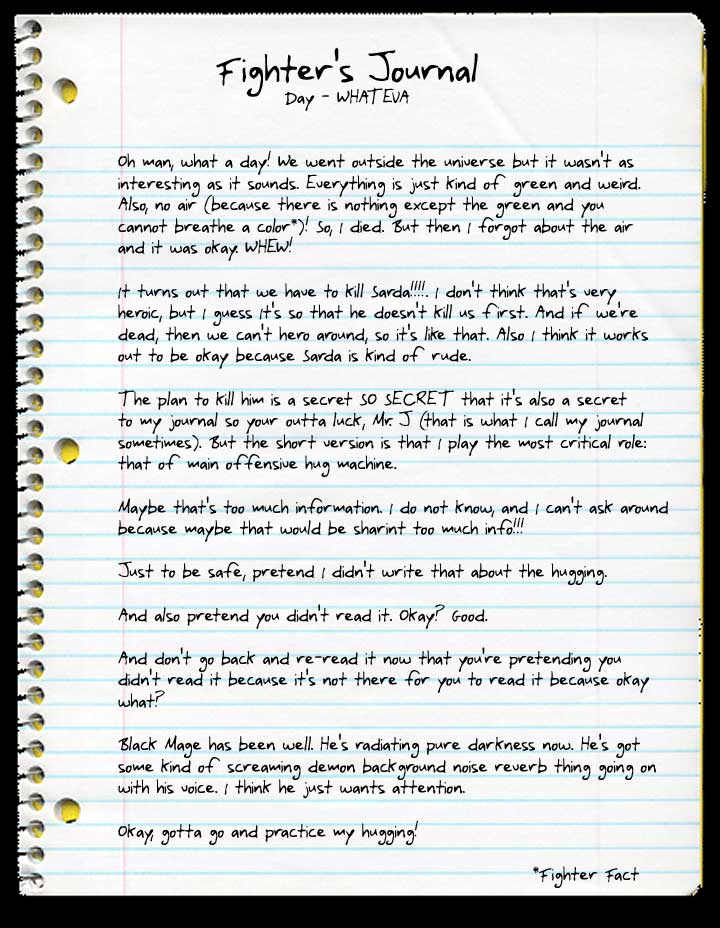 Fighter's Journal
Day - WHATEVA
Oh man, what a day! We went outside the universe but it wasn't as
interesting as it sounds. Everything is just kind of green and weird.
Also, no air (because there is nothing except the green and you
cannot breathe a color*)! So, I died. But then I forgot about the air
and it was okay. WHEW!
It turns out that we have to kill Sarda!!!!. I don't think that's very
heroic, but I guess it's so that he doesn't kill us first. And if we're
dead, then we can't hero around, so it's like that. Also I think it works
out to be okay because Sarda is kind of rude.
The plan to kill him is a secret SO SECRET that it's also a secret
to my journal so your outta luck, Mr. J (that is what I call my journal
sometimes). But the short version is that I play the most critical role:
that of main offensive hug machine.
Maybe that's too much information. I do not know, and I can't ask around
because maybe that would be sharint too much info!!!
Just to be safe, pretend I didn't write that about the hugging.
And also pretend you didn't read it. Okay? Good.
And don't go back and re-read it now that you're pretending you
didn't read it because it's not there for you to read it because okay
what?
Black Mage has been well. He's radiating pure darkness now. He's got
some kind of screaming demon background noise reverb thing going on
with his voice. I think he just wants attention.
Okay, gotta go and practice my hugging!
*Fighter Fact